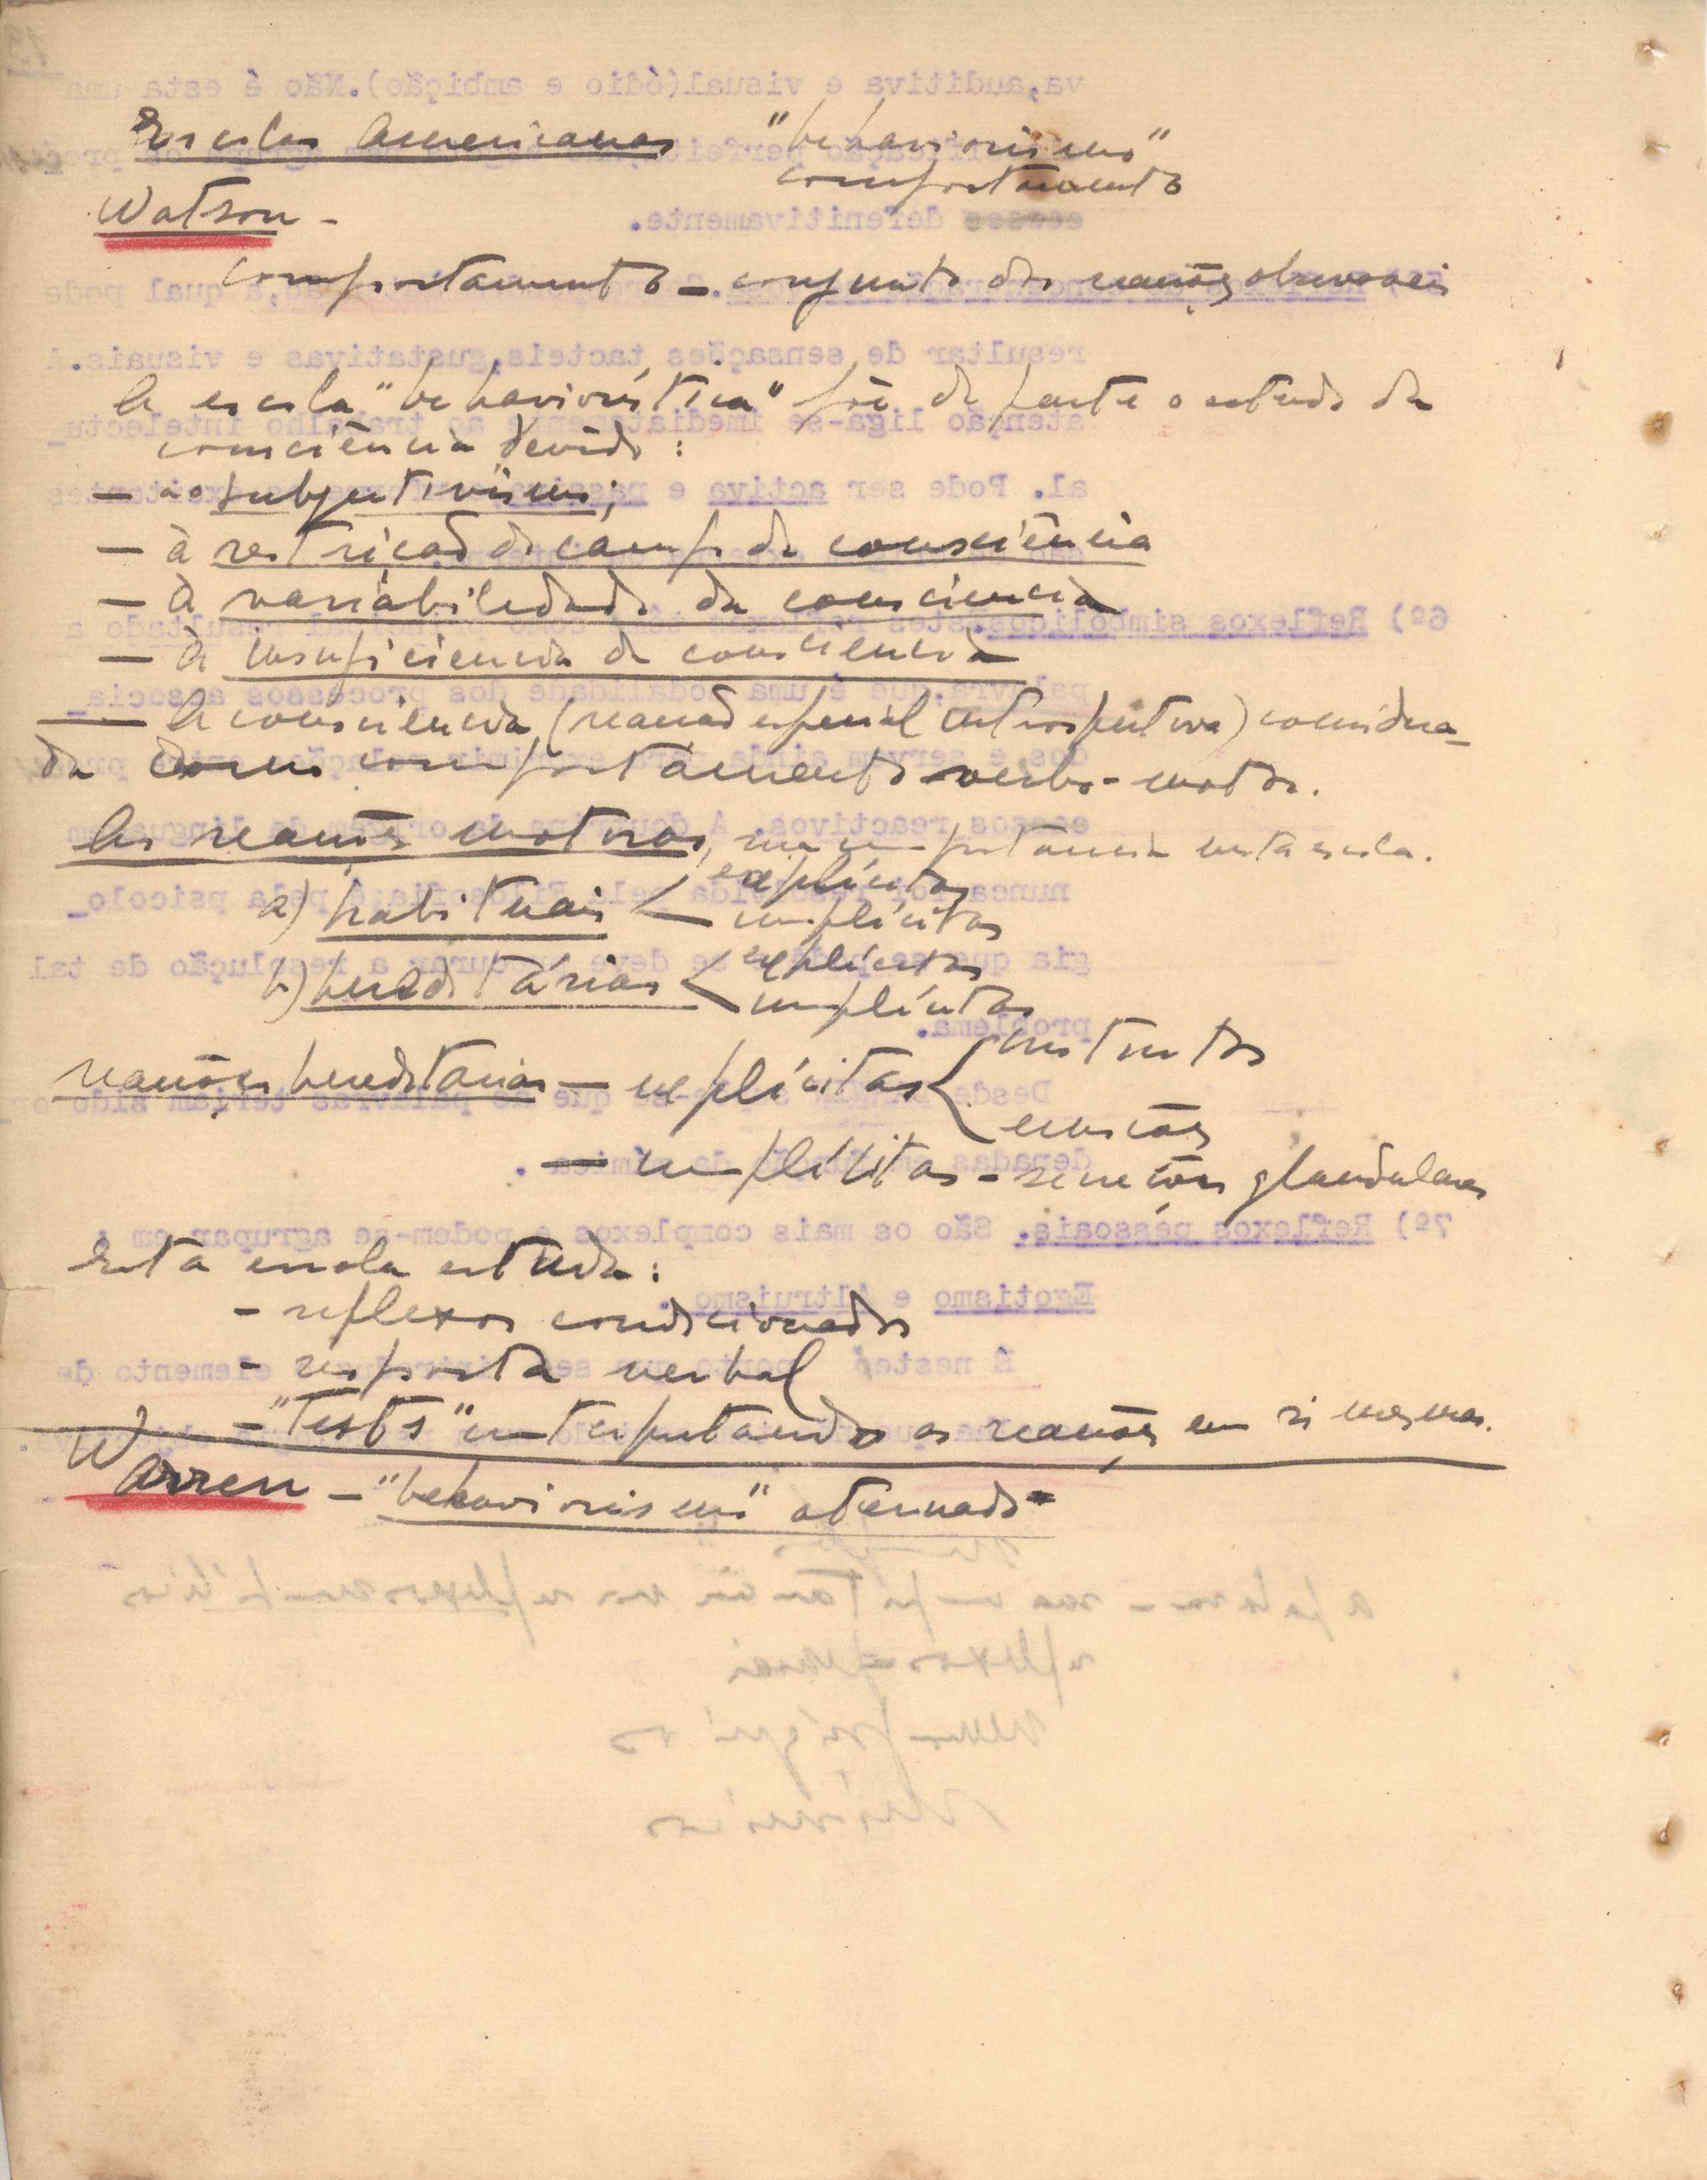 Escolas Americanas "behaviorismo"
comportamento
Watson -
comportamento - conjunto das reacções observáveis
A escola "behaviorística" põe de parte o estudo da
consciência devido:
- ao subjectivismo;
- à restrição do campo da consciência
- à variabilidade da consciencia
- à insuficiencia da consciencia
- A consciencia (reacção especial introspectiva) considera-
da como comportamento verbo-motor.
As reacções motoras, sua importancia nesta escola.
a) habituais < explícitas
implícitas
b) hereditárias < explícitas
implícitas
reacções hereditarias - explícitas { instintos
emoções
- implícitas - secreções glandulares
Esta escola estuda:
- reflexos condicionados
- resposta verbal
- "Tests" interpretando as reacções em si mesmas.
Warren - "behaviorismo" atenuado